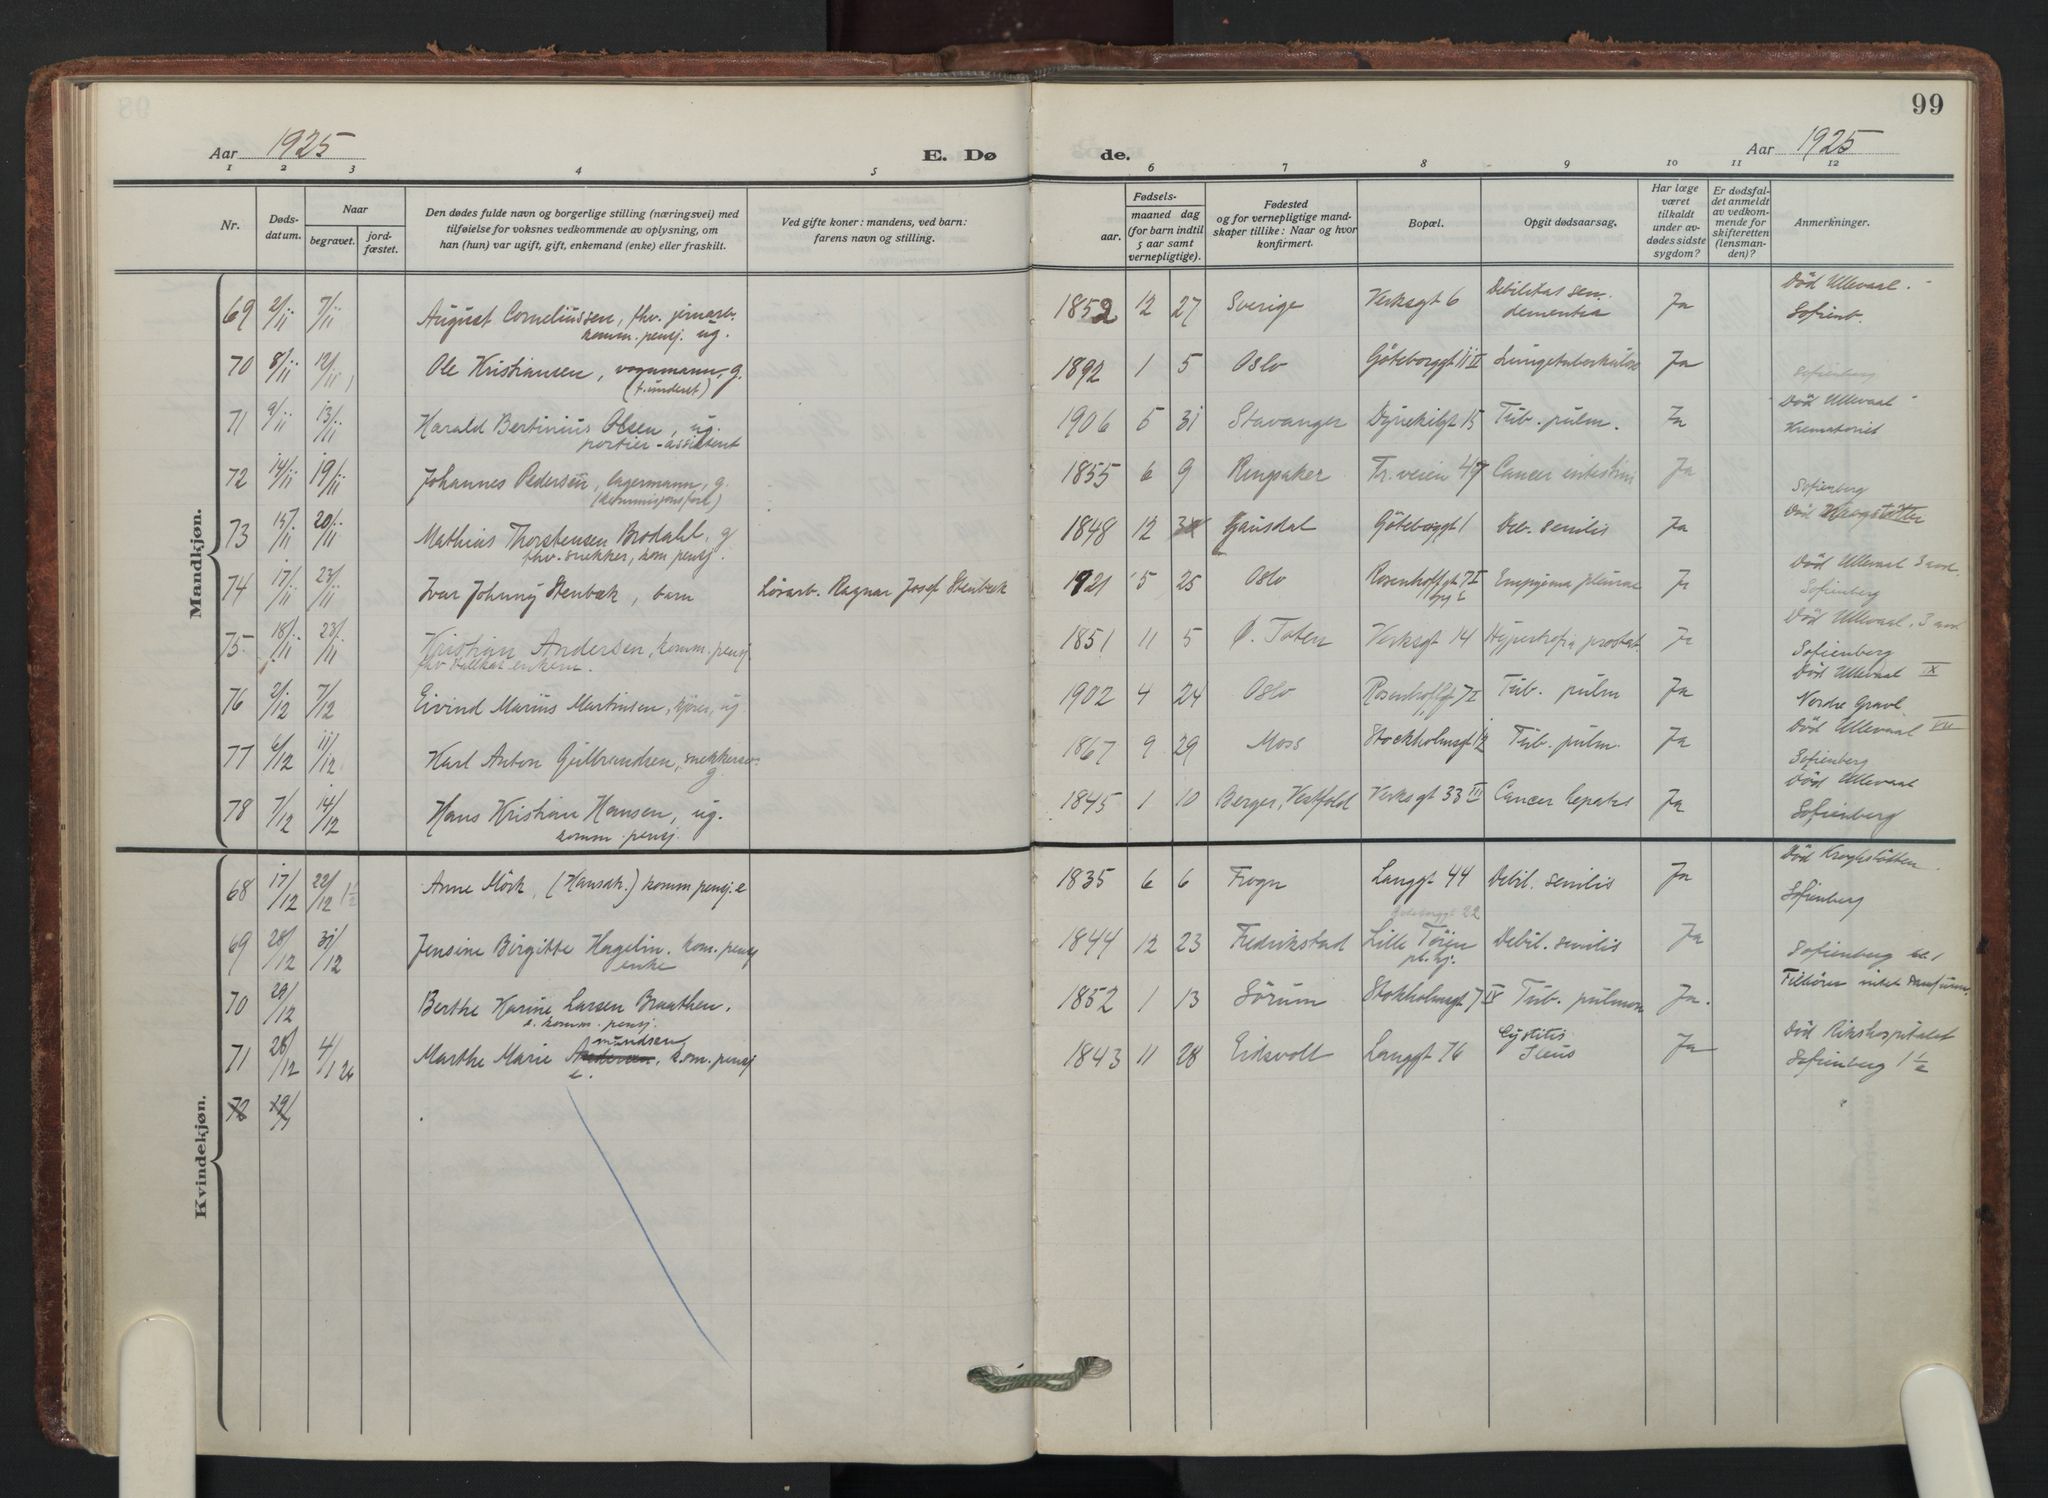 99
Aar 1925
E. Dø
de.
Aar 1925
1 2 3 4 5 6 7 8 9 10 11 12
Nr.
Døds-
datum.
Naar
begravet.
jord-
fæstet.
Den dødes fulde navn og borgerlige stilling (næringsvei) med
tilføielse for voksnes vedkommende av oplysning, om
han (hun) var ugift, gift, enkemand (enke) eller fraskilt.
Ved gifte koner: mandens, ved barn:
farens navn og stilling.
Fødsels-
aar.
maaned dag
(for barn indtil
5 aar samt
vernepligtige).
Fødested
og for vernepligtige mand-
skaper tillike: Naar og hvor
konfirmert.
Bopæl.
Opgit dødsaarsag.
Har læge
været
tilkaldt
under av-
dødes sidste
sygdom?
Er dødsfal-
det anmeldt
av vedkom-
mende for
skifteretten
(lensman-
den)?
Anmerkninger.
Mandkjøn.
69 2/11 7/11 August Corneliussen, fhv. jernarb. 1852 12 27 Sverige Verksgt 6 Debilitas sen. Ja Död Ullevaal
komm. pensj. ug. dementia Sofienb.
70 8/11 12/11 Ole Kristiansen, vognmann, g. 1892 1 5 Oslo Göteborggt 11 II Lungetuberkulose Ja Sofienberg
71 9/11 13/11 Harald Bertinius Olsen, ug. 1906 5 31 Stavanger Dynekilgt 15 Tub. pulm. Ja Död Ullevaal
portier-assistent Krematoriet
72 14/11 19/11 Johannes Pedersen, lagermann, g. 1855 6 9 Ringsaker Tr.veien 49 Cancer intestini Ja
Sofienberg
73 15/11 20/11 Mathius Thorstensen Brodahl, g 1848 12 Gausdal Göteborggt 1 Deb. senilis Ja Död
fhv. snekker, kom pensj.
74 17/11 23/11 Ivar Johnny Stenbæk, barn Lösarb. Ragnar Josef Stenbæk 1921 5 25 Oslo Rosenhoffgt 7 I Empyema pleurae Ja Död Ullevaal
Sofienberg
75 18/11 23/11 Kristian Andersen, komm. pensj. 1851 11 5 Ø. Toten Verksgt 14 Hypertrofia prostat. Ja Död Ullevaal
enkem. Sofienberg
76 2/12 7/12 Eivind Marius Martinsen, kjörer, ug 1902 4 24 Oslo Rosenhoffgt 7 I Tub. pulm Ja Död Ullevaal IX
Nordre Gravl.
77 6/12 11/12 Karl Anton Gulbrandsen, snekkersv. 1867 9 29 Moss Stockholmsgt 12 Tub. pulm. Ja Död Ullevaal VII
g. Sofienberg
78 7/12 14/12 Hans Kristian Hansen, ug. 1845 1 10 Berger, Vestfold Verksgt 33 III Cancer hepatis Ja Död Ullevaal
komm. pensj. Sofienberg
Kvindekjøn.
68 17/12 22/12 1½ Anne Mörk, (Hansdt.) komm pensj. e 1835 6 6 Frogn Langgt 44 Debil. senilis Ja Död Kroghstötten
Sofienberg
69 28/12 31/12 Jensine Birgitte Hagelin, kom. pensj 1844 12 23 Fredrikstad Lille Töien Debil. senilis Ja
enke pl. hj. Sofienberg
70 28/12 Berthe Karine Larsen Braathen, 1852 1 13 Sörum Stokholmsgt 7 IV Tub. pulmon Ja. Tilhörer
e. komm. pensj.
71 28/12 4/1 26 Marthe Marie Andersen, mundsen kom. pensj 1843 11 28 Eidsvoll Langgt 76 Cystitis Ja Död Rikshospitalet
e. Ileus Sofienberg 1½
72 29/